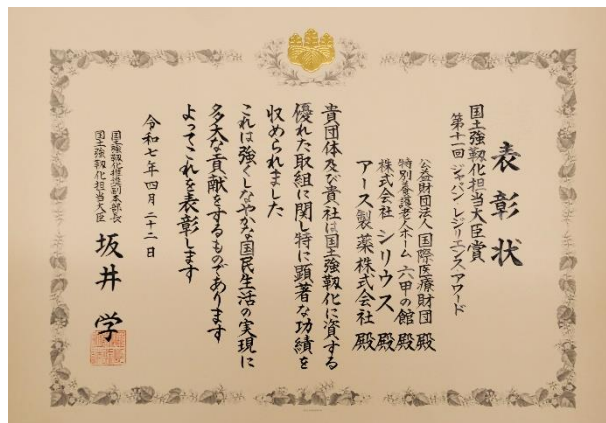 表彰状
国土強靱化担当大臣賞
第十一回 ジャパン レジリエンス アワード
公益財団法人 国際医療財団 殿
特別養護老人ホーム 六甲の館 殿
株式会社 シリウス 殿
アース製薬株式会社 殿
貴団体及び貴社は国土強靱化に資する
優れた取組に関し特に顕著な功績を
収められました
これは強くしなやかな国民生活の実現に
多大な貢献をするものであります
よってこれを表彰します
令和七年四月二十二日
国土強靱化推進副本部長
国土強靱化担当大臣
坂井 学